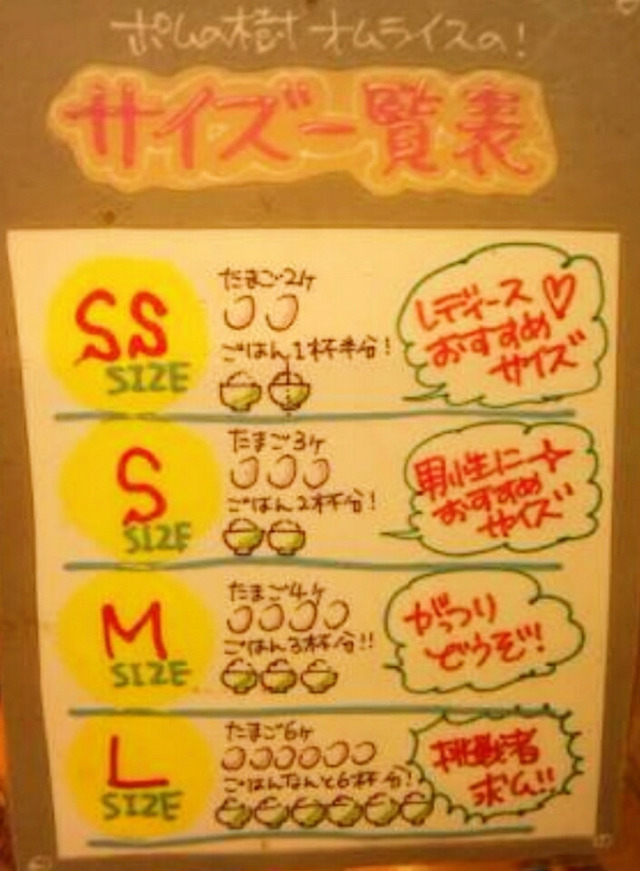 ポムの樹オムライスの!
サイズ一覧表
SS
SIZE
たまご2ケ
ごはん1杯半分!
レディース♡
おすすめ
サイズ
S
SIZE
たまご3ケ
ごはん2杯分!
男性に
おすすめ
サイズ
M
SIZE
たまご4ケ
ごはん3杯分!!
がっつり
どうぞ!
L
SIZE
たまご6ケ
ごはんなんと6杯分!
挑戦者
求ム!!